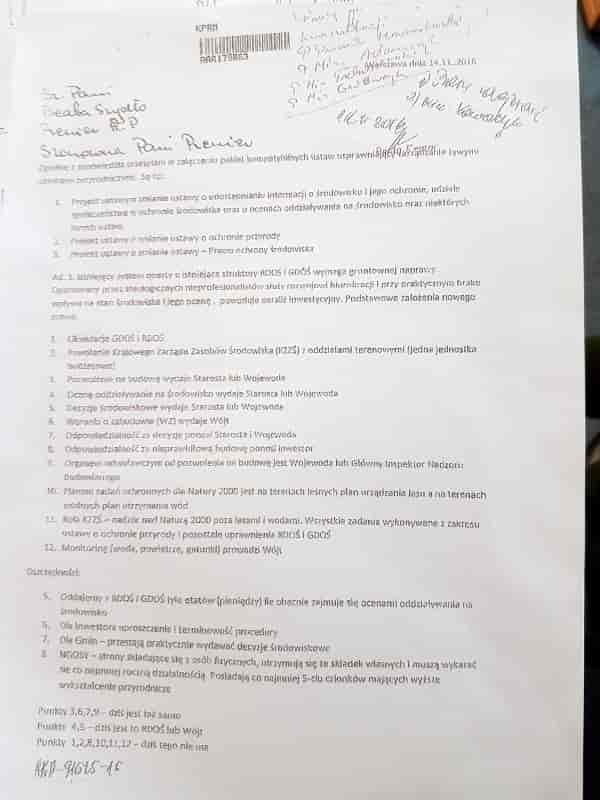 KPRM
AAA179863
Warszawa dnia 14.11.2016
Sz. Pani
Beata Szydło
Premier R.P
Szanowna Pani Premier
Zgodnie z zapowiedzią przesyłam w załączeniu pakiet ustaw usprawniający zarządzanie żywymi
zasobami przyrodniczymi. Są to:
1. Projekt ustawy o zmianie ustawy o udostępnianiu informacji o środowisku i jego ochronie, udziale
społeczeństwa w ochronie środowiska oraz o ocenach oddziaływania na środowisko oraz niektórych
innych ustaw.
2. Projekt ustawy o zmianie ustawy o ochronie przyrody
3. Projekt ustawy o zmianie ustawy – Prawo ochrony środowiska
Ad. 1. Istniejący system oparty o istniejące struktury RDOŚ i GDOŚ wymaga gruntownej naprawy.
Opanowany przez ideologicznych nieprofesjonalistów służy rozwojowi biurokracji i przy praktycznym braku
wpływu na stan środowiska i jego ocenę , powoduje paraliż inwestycyjny. Podstawowe założenia nowego
prawa:
1. Likwidacja GDOŚ i RDOŚ
2. Powołanie Krajowego Zarządu Zasobów Środowiska (KZZŚ) z oddziałami terenowymi (jedna jednostka
budżetowa)
3. Pozwolenie na budowę wydaje Starosta lub Wojewoda
4. Ocenę oddziaływania na środowisko wydaje Starosta lub Wojewoda
5. Decyzje środowiskowe wydaje Starosta lub Wojewoda
6. Warunki o zabudowie (WZ) wydaje Wójt
7. Odpowiedzialność za decyzje ponosi Starosta i Wojewoda
8. Odpowiedzialność za nieprawidłową budowę ponosi inwestor
9. Organem odwoławczym od pozwolenia na budowę jest Wojewoda lub Główny Inspektor Nadzoru
Budowlanego
10. Planem zadań ochronnych dla Natury 2000 jest na terenach leśnych plan urządzania lasu a na terenach
wodnych plan utrzymania wód
11. Rola KZZŚ – nadzór nad Naturą 2000 poza lasami i wodami. Wszystkie zadania wykonywane z zakresu
ustawy o ochronie przyrody i pozostałe uprawnienia RDOŚ i GDOŚ
12. Monitoring (woda, powietrze, gatunki) prowadzi Wójt
Oszczędności:
5. Oddajemy z RDOŚ i GDOŚ tyle etatów (pieniędzy) ile obecnie zajmuje się ocenami oddziaływania na
środowisko
6. Dla inwestora uproszczenie i terminowość procedury
7. Dla Gmin – przestają praktycznie wydawać decyzje środowiskowe
8. NGOSY – strony składające się z osób fizycznych, utrzymują się ze składek własnych i muszą wykazać
się co najmniej roczną działalnością. Posiadają co najmniej 5-ciu członków mających wyższe
wykształcenie przyrodnicze
Punkty 3,6,7,9 – dziś jest tak samo
Punkty 4,5 – dziś jest to RDOŚ lub Wójt
Punkty 1,2,8,10,11,12 – dziś tego nie ma